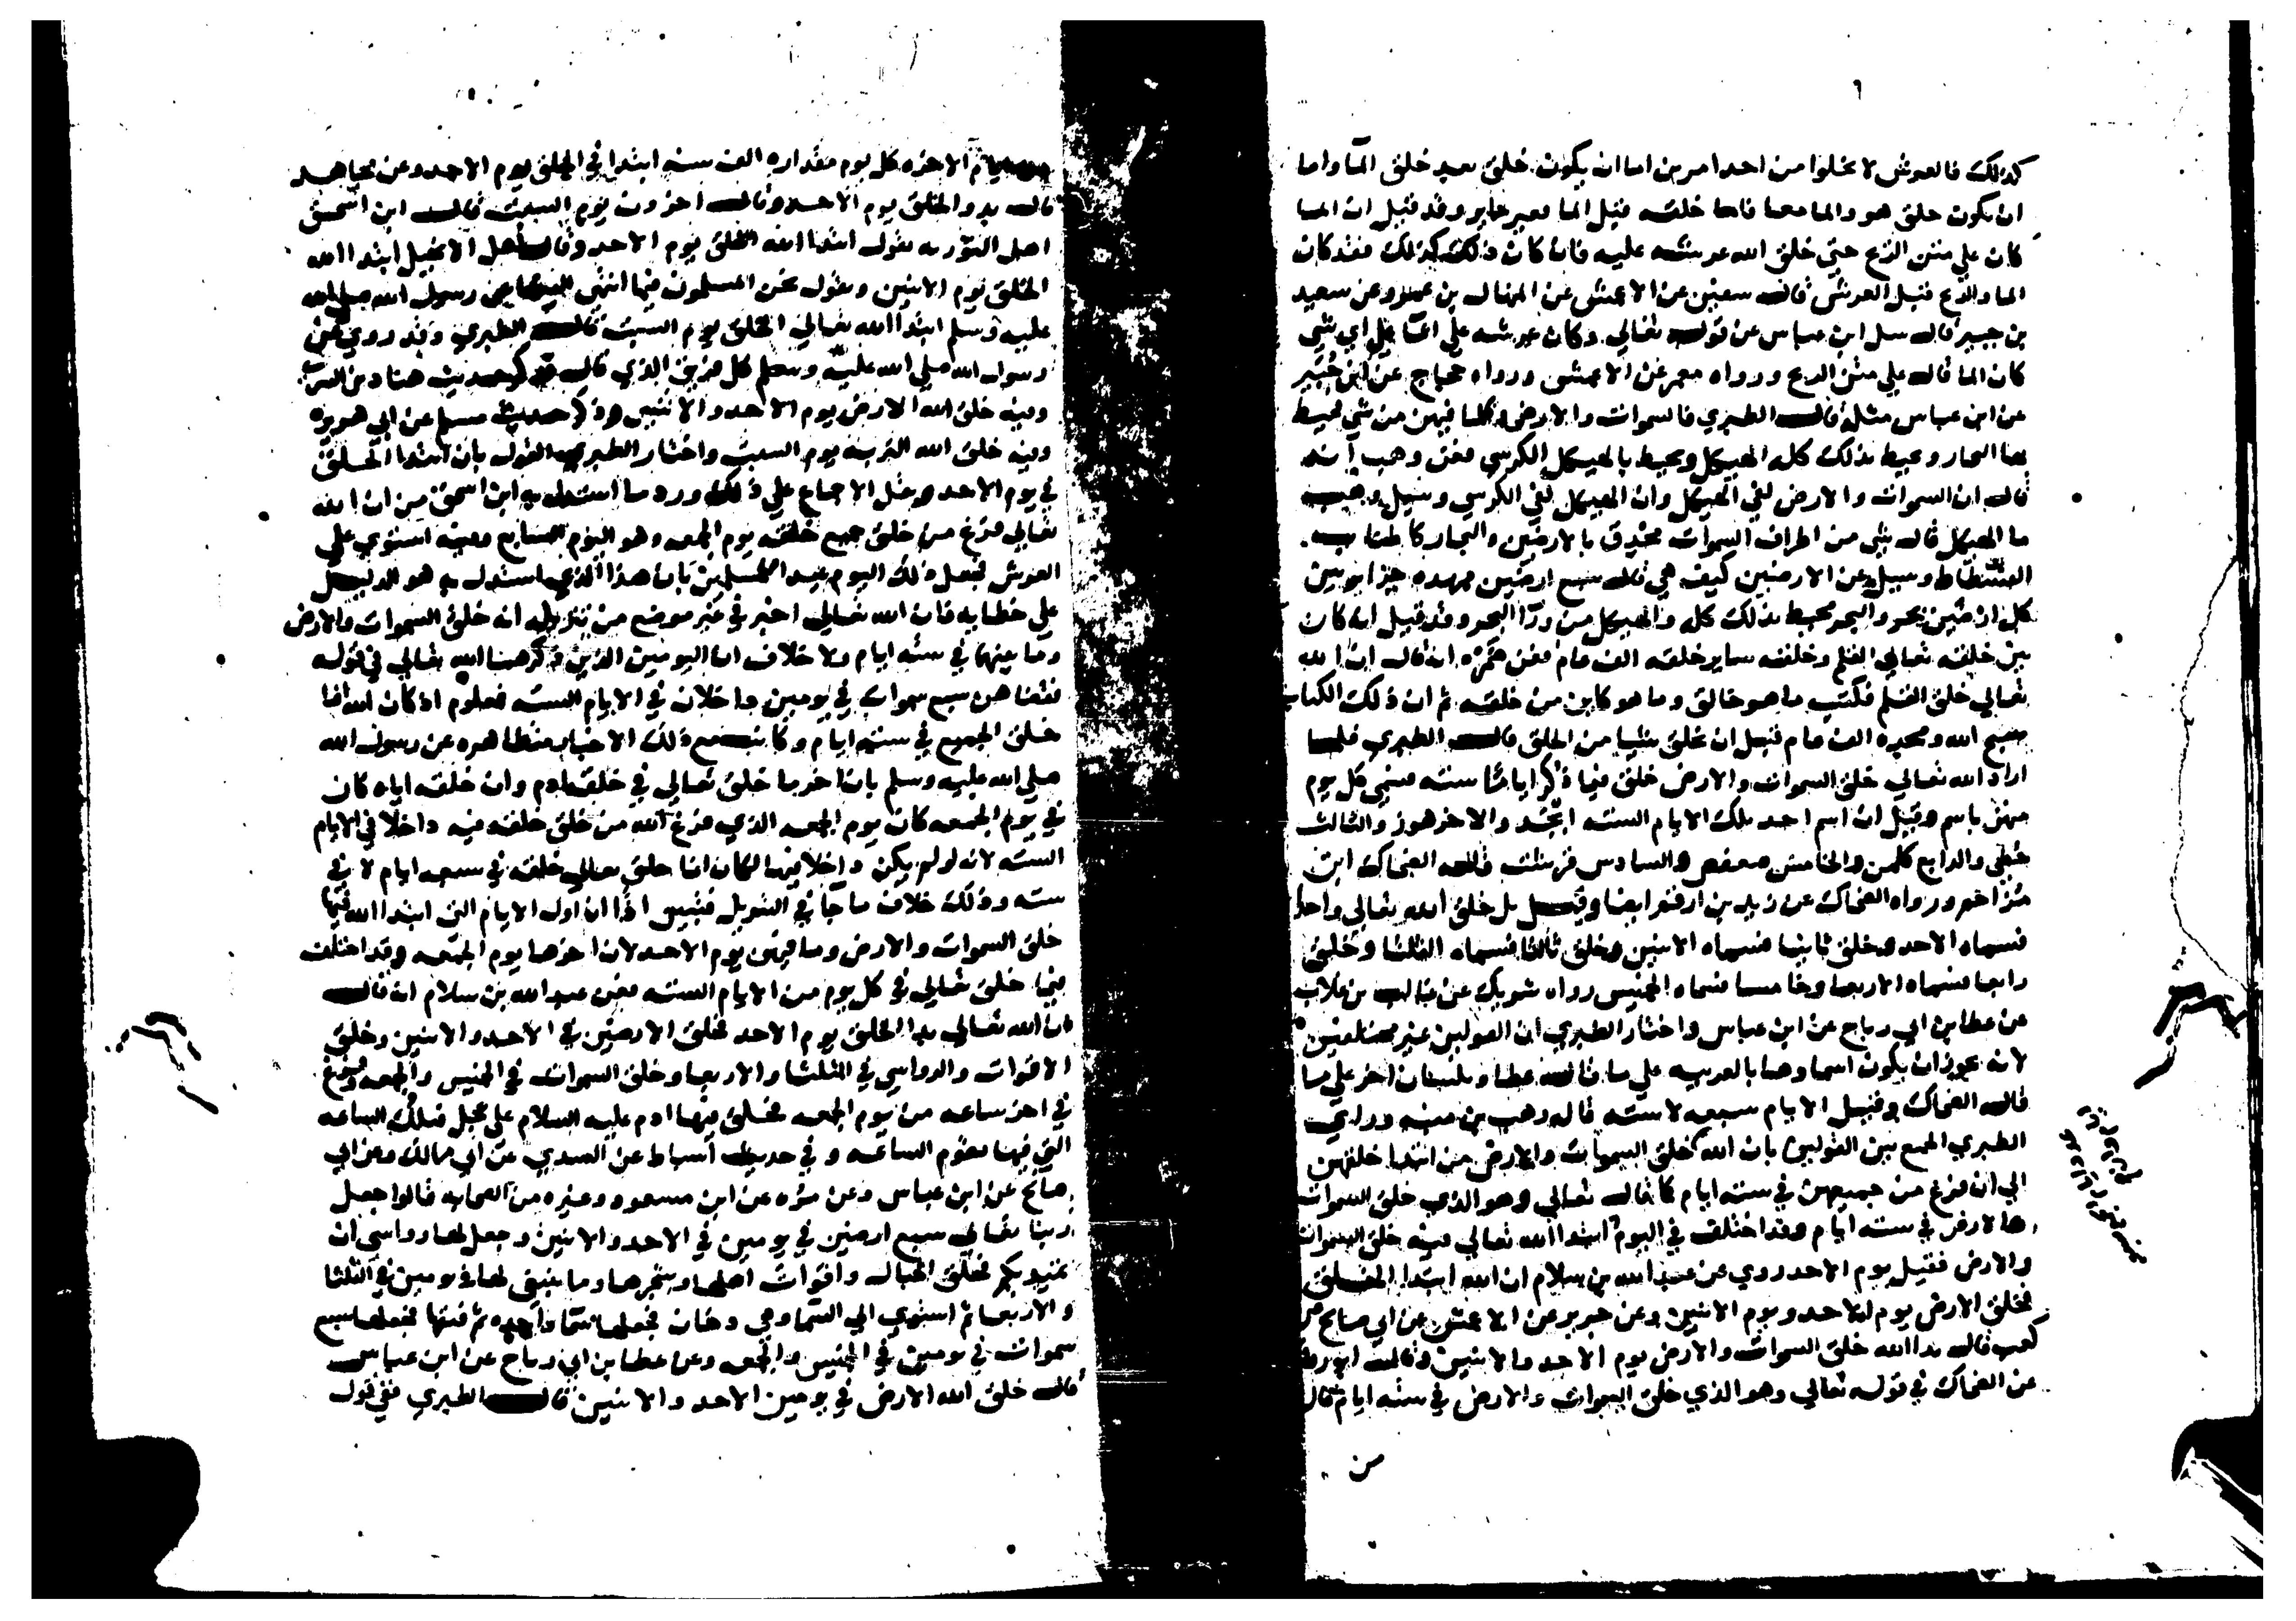 كذلك فالعرش لا يخلوا من احد امرين اما ان يكون خلق بعيد خلق المآ واما
ان يكون خلق هو والما معا فاما خلقه قبل الما فغير جايز وقد قيل ان الما
كان علي متن الريح حتي خلق الله عرشه عليه فان كان ذلك كذلك فقد كان
الما والريح قبل العرش قال سفين عن الاعمش عن المنهال بن عمرو عن سعيد
بن جبير قال سل ابن عباس عن قوله تعالي وكان عرشه علي المآ علي اي شي
كان الما قال علي متن الريح ورواه معمر عن الاعمش ورواه حجاج عن ابن جبير
عن ابن عباس مثله قال الطبري فالسموات والارض وكلما فيهن من شي محيط
بها البحار ومحيط بذلك كله الهيكل ومحيط بالهيكل الكرسي فعن وهب انه
قال ان السموات والارض لفي الهيكل وان الهيكل لفي الكرسي وسيل وهب
ما الهيكل قال شي من اطراف السموات محدق بالارضين والبحار كاطناب
الفسطاط وسيل عن الارضين كيف هي قال سبع ارضين ممهده جزاير بين
كل ارضين بحر والبحر محيط بذلك كله والهيكل من ورآ البحر وقد قيل انه كان
بين خلقه تعالي القلم وخلقه ساير خلقه الف عام فعن ضمره انه قال ان الله
تعالي خلق القلم فكتب ما هو خالق وما هو كاين من خلقه ثم ان ذلك الكتاب
سبح الله ومجده الف عام قبل ان يخلق شيا من الخلق قال الطبري فلما
اراد الله تعالي خلق السموات والارض خلق فيما ذكر اياما سته فسمي كل يوم
منهن باسم وقيل ان اسم احد تلك الايام السته ابجد والاخر هوز والثالث
حطي والرابع كلمن والخامس صعفص والسادس قرشت قاله الضحاك ابن
مزاحم ورواه الضحاك عن زيد بن ارقم ايضا وقيل بل خلق الله تعالي واحدا
فسماه الاحد وخلق ثانيا فسماه الاثنين وخلق ثالثا فسماه الثلثا وخلق
رابعا فسماه الاربعا وخامسا فسماه الخميس رواه شريك عن غالب بن غلاب
عن عطا بن ابي رباح عن ابن عباس واختار الطبري ان القولين غير مختلفين
لانه يجوز ان يكون اسماوها بالعربيه علي ما قاله عطا وبلسان اخر علي ما
قاله الضحاك وقيل الايام سبعه لا سته قاله وهب بن منبه وراي
الطبري الجمع بين القولين بان الله خلق السموات والارض من ابتدا خلقهن
الي ان فرغ من جميعهن في سته ايام كما قال تعالي وهو الذي خلق السموات
والارض في سته ايام وقد اختلف في اليوم ابتدا الله تعالي فيه خلق السموات
والارض فقيل يوم الاحد روي عن عبد الله بن سلام ان الله ابتدا الخلق
فخلق الارض يوم الاحد ويوم الاثنين وعن جرير عن الاعمش عن ابي صالح عن
كعب قال بدا الله خلق السموات والارض يوم الاحد والاثنين وقال ابو روق
عن الضحاك في قوله تعالي وهو الذي خلق السموات والارض في سته ايام قال
من
ايام الاخره كل يوم مقداره الف سنه ابتدا في الخلق يوم الاحد وعن مجاهد
قال بدو الخلق يوم الاحد وقال اخرون يوم السبت قال ابن اسحق
اهل التوريه يقول ابتدا الله الخلق يوم الاحد وقال اهل الانجيل ابتدا الله
الخلق يوم الاثنين ونقول نحن المسلمون فيما انتهي الينا عن رسول الله صلي الله
عليه وسلم ابتدا الله تعالي الخلق يوم السبت قال الطبري وقد روي عن
رسول الله صلي الله عليه وسلم كل فريق الذي قال فذكر حديث هناد بن السري
وفيه خلق الله الارض يوم الاحد والاثنين وذكر حديث مسلم عن ابي هريره
وفيه خلق الله التربه يوم السبت واختار الطبري القول بان ابتدا الخلق
في يوم الاحد ونقل الاجماع علي ذلك ورد ما استدل به ابن اسحق من ان الله
تعالي فرغ من خلق جميع خلقه يوم الجمعه وهو اليوم السابع وفيه استوي علي
العرش فجعل ذلك اليوم عيدا للمسلمين بان هذا الذي استدل به هو الدليل
علي خطايه فان الله تعالي اخبر في غير موضع من تنزيله انه خلق السموات والارض
وما بينهما في سته ايام ولا خلاف ان اليومين الذين ذكرهما الله تعالي في قوله
فقضاهن سبع سموات في يومين داخلان في الايام السته فمعلوم اذ كان الله انما
خلق الجميع في سته ايام وكانت مع ذلك الاخبار متظاهره عن رسول الله
صلي الله عليه وسلم بان اخر ما خلق تعالي في خلقه ادم وان خلقه اياه كان
في يوم الجمعه كان يوم الجمعه الذي فرغ الله من خلق خلقه فيه داخلا في الايام
السته لانه لو لم يكن داخلا فيها لكان انما خلق تعالي خلقه في سبعه ايام لا في
سته وذلك خلاف ما جآ في التنزيل فتبين اذا ان اول الايام التي ابتدا الله فيها
خلق السموات والارض وما فيهن يوم الاحد لان اخرها يوم الجمعه وقد اختلف
فيما خلق تعالي في كل يوم من الايام السته فعن عبد الله بن سلام انه قال
ان الله تعالي بدا الخلق يوم الاحد فخلق الارضين في الاحد والاثنين وخلق
الاقوات والرواسي في الثلثا والاربعا وخلق السموات في الخميس والجمعه وفرغ
في اخر ساعه من يوم الجمعه فخلق فيها ادم عليه السلام علي عجل فتلك الساعه
التي فيها تقوم الساعه وفي حديث اسباط عن السدي عن ابي مالك وعن ابي
صالح عن ابن عباس وعن مره عن ابن مسعود وغيره من الصحابه قالوا جعل
ربنا تعالي سبع ارضين في يومين في الاحد والاثنين وجعل لها رواسي ان
تميد بكم فخلق الجبال واقوات اهلها وشجرها وما ينبغي لها في يومين في الثلثا
والاربعا ثم استوي الي السما وهي دخان فجعلها سمآ واحده ثم فتقها فجعلها سبع
سموات في يومين في الخميس والجمعه وعن عطا بن ابي رباح عن ابن عباس
قال خلق الله الارض في يومين الاحد والاثنين قال الطبري ففي قول